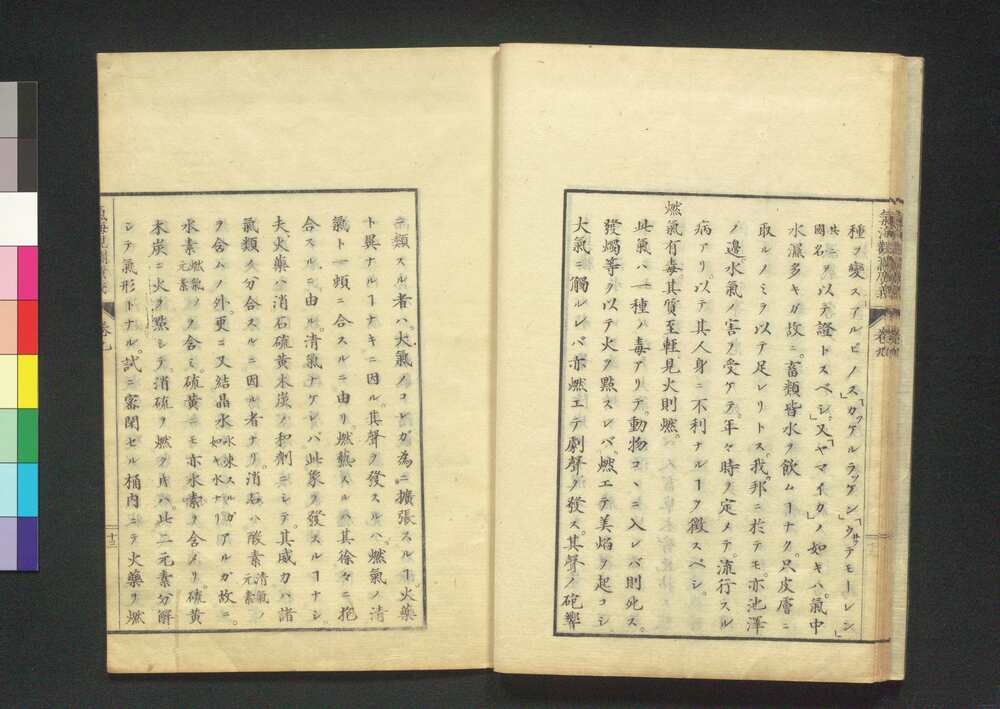 種ヲ變ス「アルビノス」「カッケルラッケン」「ウサテモーレン」
共ニ國名ヲ以テ證トスベシ。又「ヤマイカ」ノ如キハ。氣中
水濕多キガ故ニ。畜類皆水ヲ飲ムヿナク。只皮膚ニ
取ルノミヲ以テ足レリトス。我邦ニ於テモ。亦池澤
ノ邊。水氣ノ害ヲ受ケテ。年々時ヲ定メテ。流行スル
病アリ。以テ其人身ニ不利ナルヿヲ徴スベシ。
燃氣有毒其質至輕見火則燃。
此氣ハ一種ノ毒アリテ。動物コヽニ入レバ則死ス。
發燭等ヲ以テ火ヲ點スレバ。燃エテ美焰ヲ起コシ
大氣ニ觸ルレバ亦燃エテ劇聲ヲ發ス。其聲ノ砲響
ニ類スル者ハ。大氣ノコレガ為ニ擴張スルヿ。火藥
ト異ナルヿナキニ因ル。其聲ヲ發スルハ。燃氣ノ清
氣ト一頓ニ合スルニ由リ。燃熱スルハ其徐々ニ抱
合スルニ由ル。清氣ナケレバ此象ヲ發スルヿナシ。
夫火藥ハ消石硫黄木炭ノ和劑ニシテ。其威力ハ諸
氣類ノ分合スルニ因ル者ナリ。消石ハ酸素清氣ノ元素
ヲ含ムノ外。更ニ又結晶水氷凍スルガ如キ水ナリアルガ故ニ。
水素燃氣ノ元素ヲ含ミ。硫黄ニモ亦水素ヲ含メリ。硫黄
木炭ニ火ヲ點シテ。消硫ヲ燃ヤセバ。此二元素分解
シテ氣形トナル。試ニ密閉セル桶内ニテ火藥ヲ燃
氣海觀瀾廣義
卷九
十三